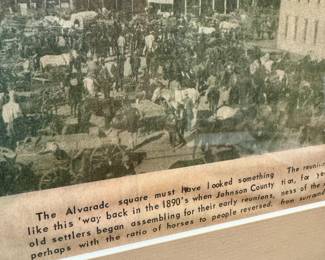 The Alvarado square must have looked something
like this 'way back in the 1890's when Johnson County
old settlers began assembling for their early reunions,
perhaps with the ratio of horses to people reversed.
The reuni
tion, for ye
ness of the
from surround